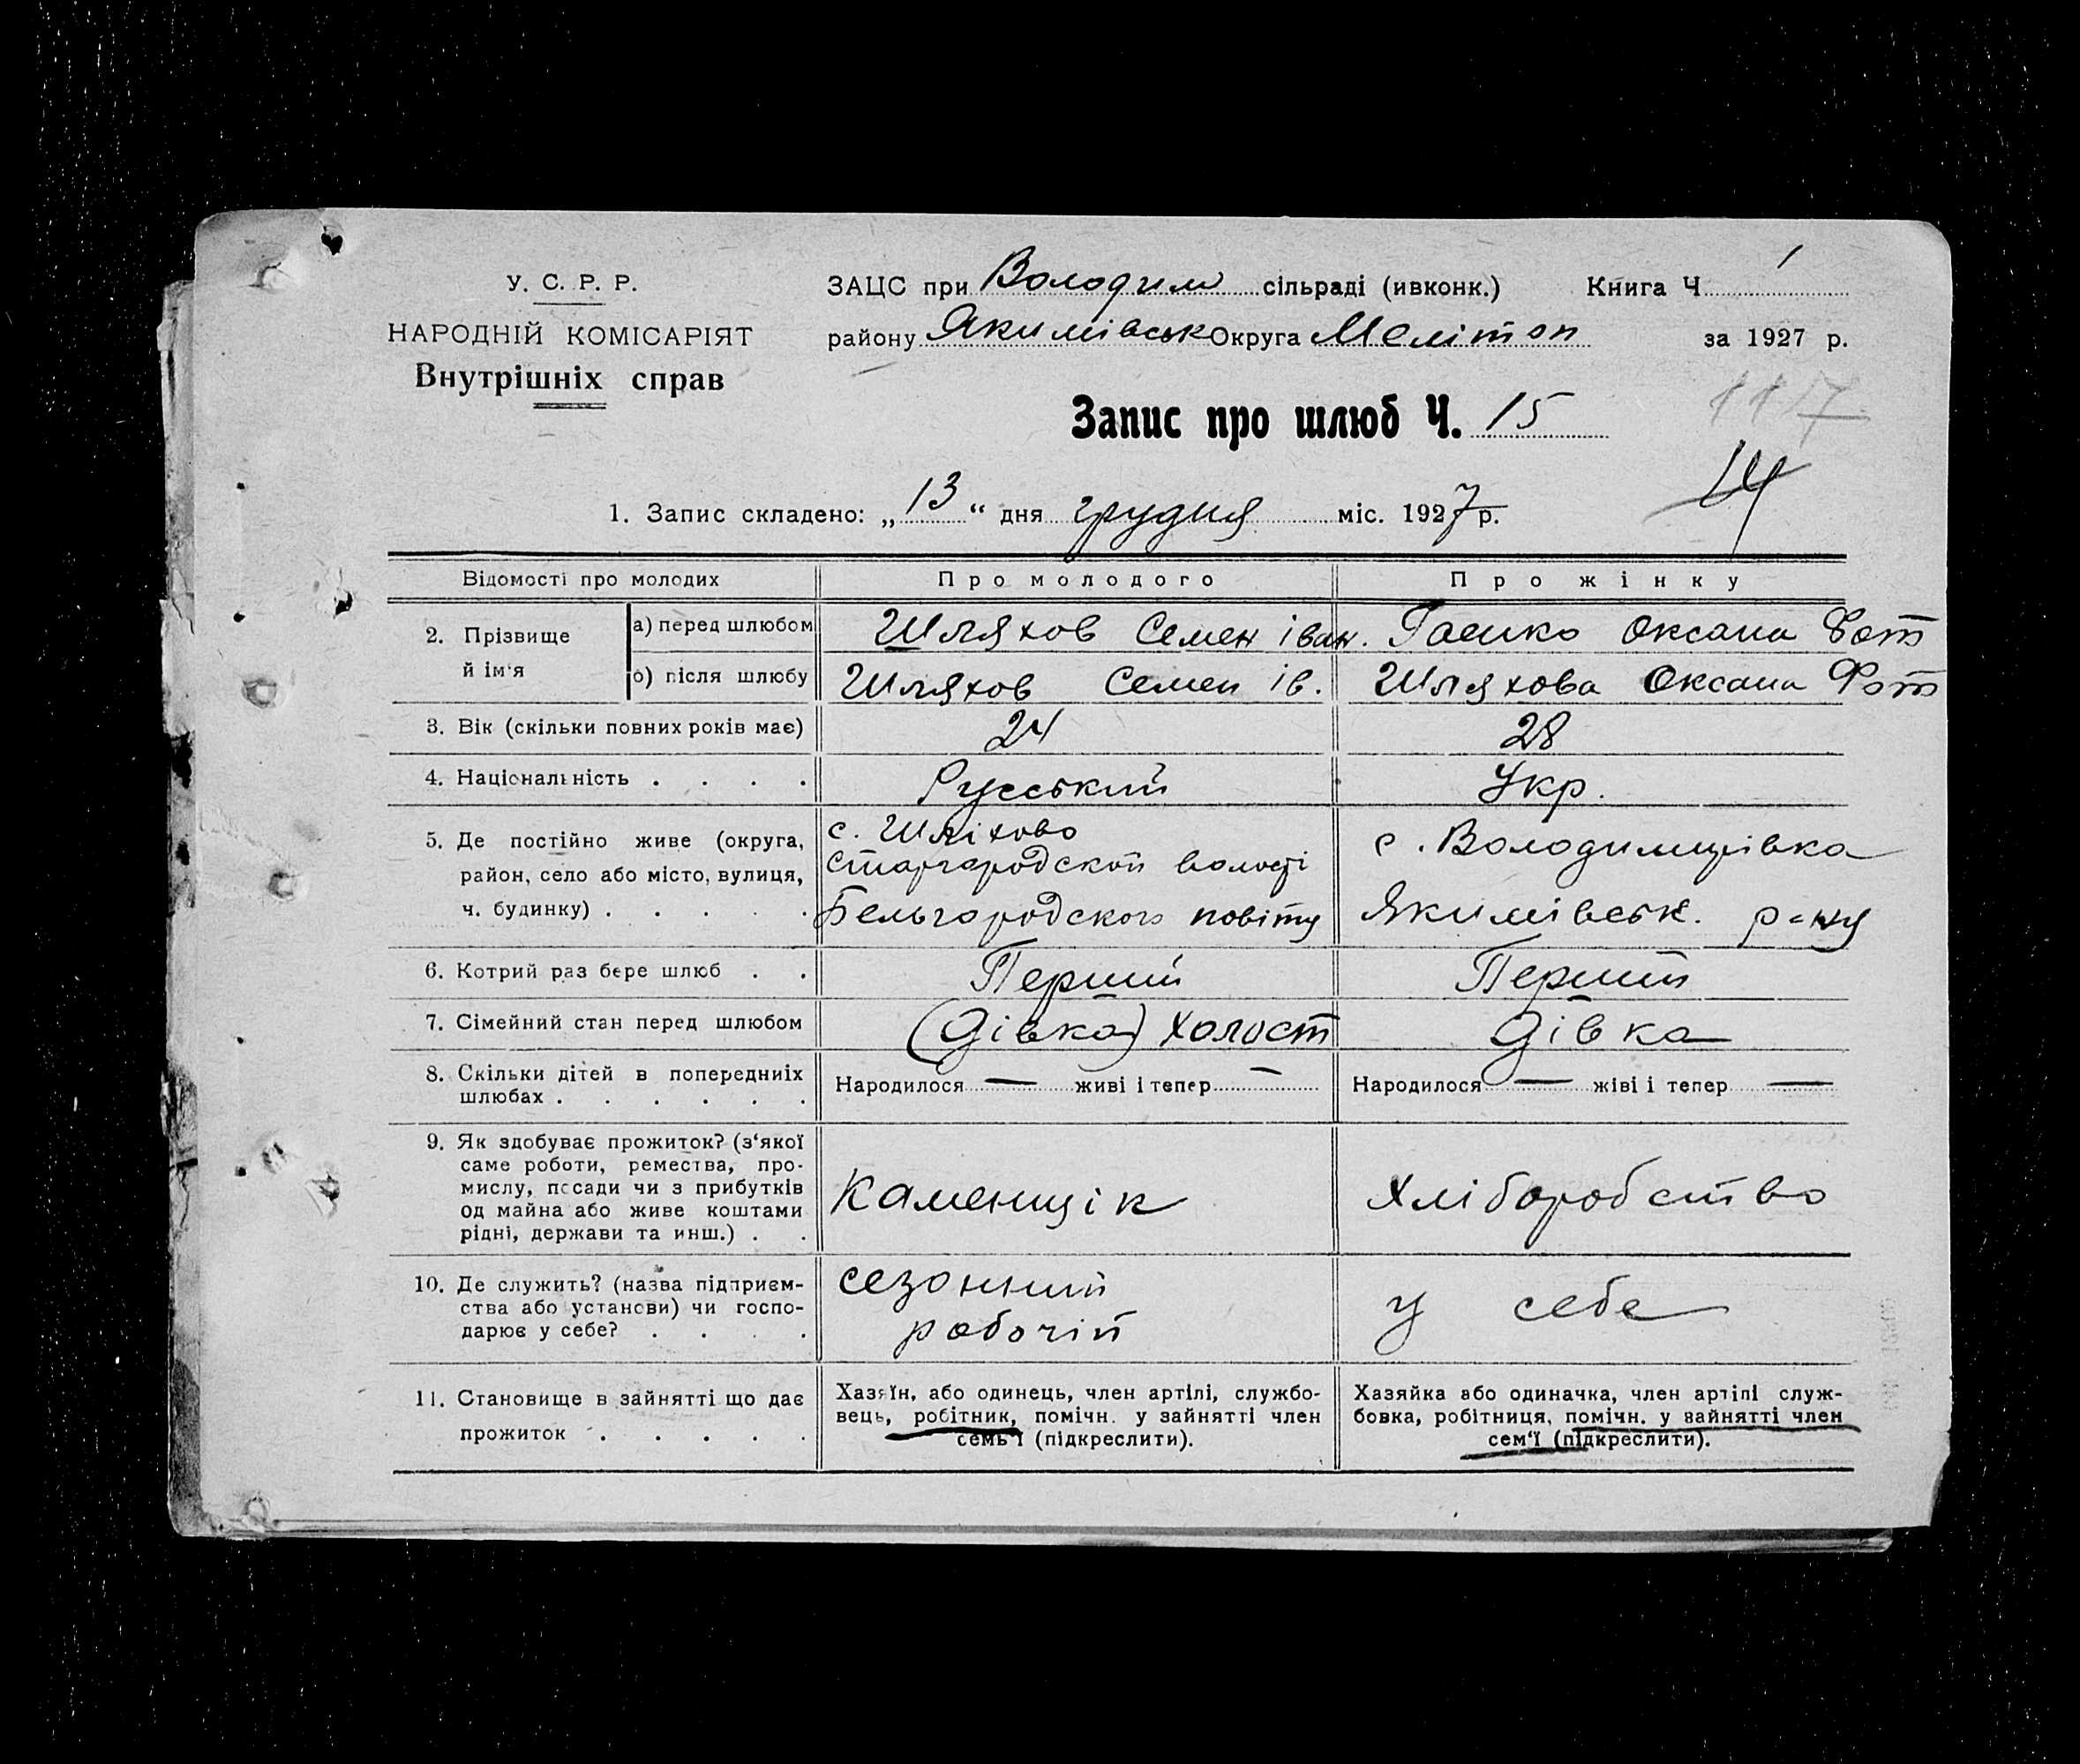 У. С. Р. Р.
НАРОДНІЙ КОМІСАРІЯТ
Внутрішніх справ
ЗАЦС при Володим сільраді (ивконк.) Книга Ч. 1
району Якимівськ Округа Меліт оп за 1927 р.
117
Запис про шлюб Ч. 15
14
1. Запис складено: „13“ дня грудня міс. 1927 р.
Відомості про молодих Про молодого Про жінку
2. Прізвище й ім'я
а) перед шлюбом Шляхов Семен іван. Гаенко Оксана Фот
о) після шлюбу Шляхов Семен ів. Шляхова Оксана Фот
3. Вік (скільки повних років має) 24 28
4. Національність . . . . Русський Укр.
5. Де постійно живе (округа, район, село або місто, вулиця, ч. будинку) . . . . .
с. Шліхово
старгородской волості
Бельгородского повіту
с. Володимирівка
Якимівськ. р-ну
6. Котрий раз бере шлюб . . Перший Перший
7. Сімейний стан перед шлюбом (дівка) холост дівка
8. Скільки дітей в попередниіх шлюбах . . . . . .
Народилося — живі і тепер — Народилося — жіві і тепер —
9. Як здобуває прожиток? (з'якої
саме роботи, ремества, про-
мислу, посади чи з прибутків
од майна або живе коштами
рідні, держави та инш.) . .
Каменщік хліборобство
10. Де служить? (назва підприєм-
ства або установи) чи госпо-
дарює у себе? . . . .
сезонний
робочій
у себе
11. Становище в зайнятті що дає
прожиток . . . . .
Хазяїн, або одинець, член артілі, службо-
вець, робітник, помічн. у зайнятті член
семь'ї (підкреслити).
Хазяйка або одиначка, член артілі служ-
бовка, робітниця, помічн. у зайнятті член
сем'ї (підкреслити).